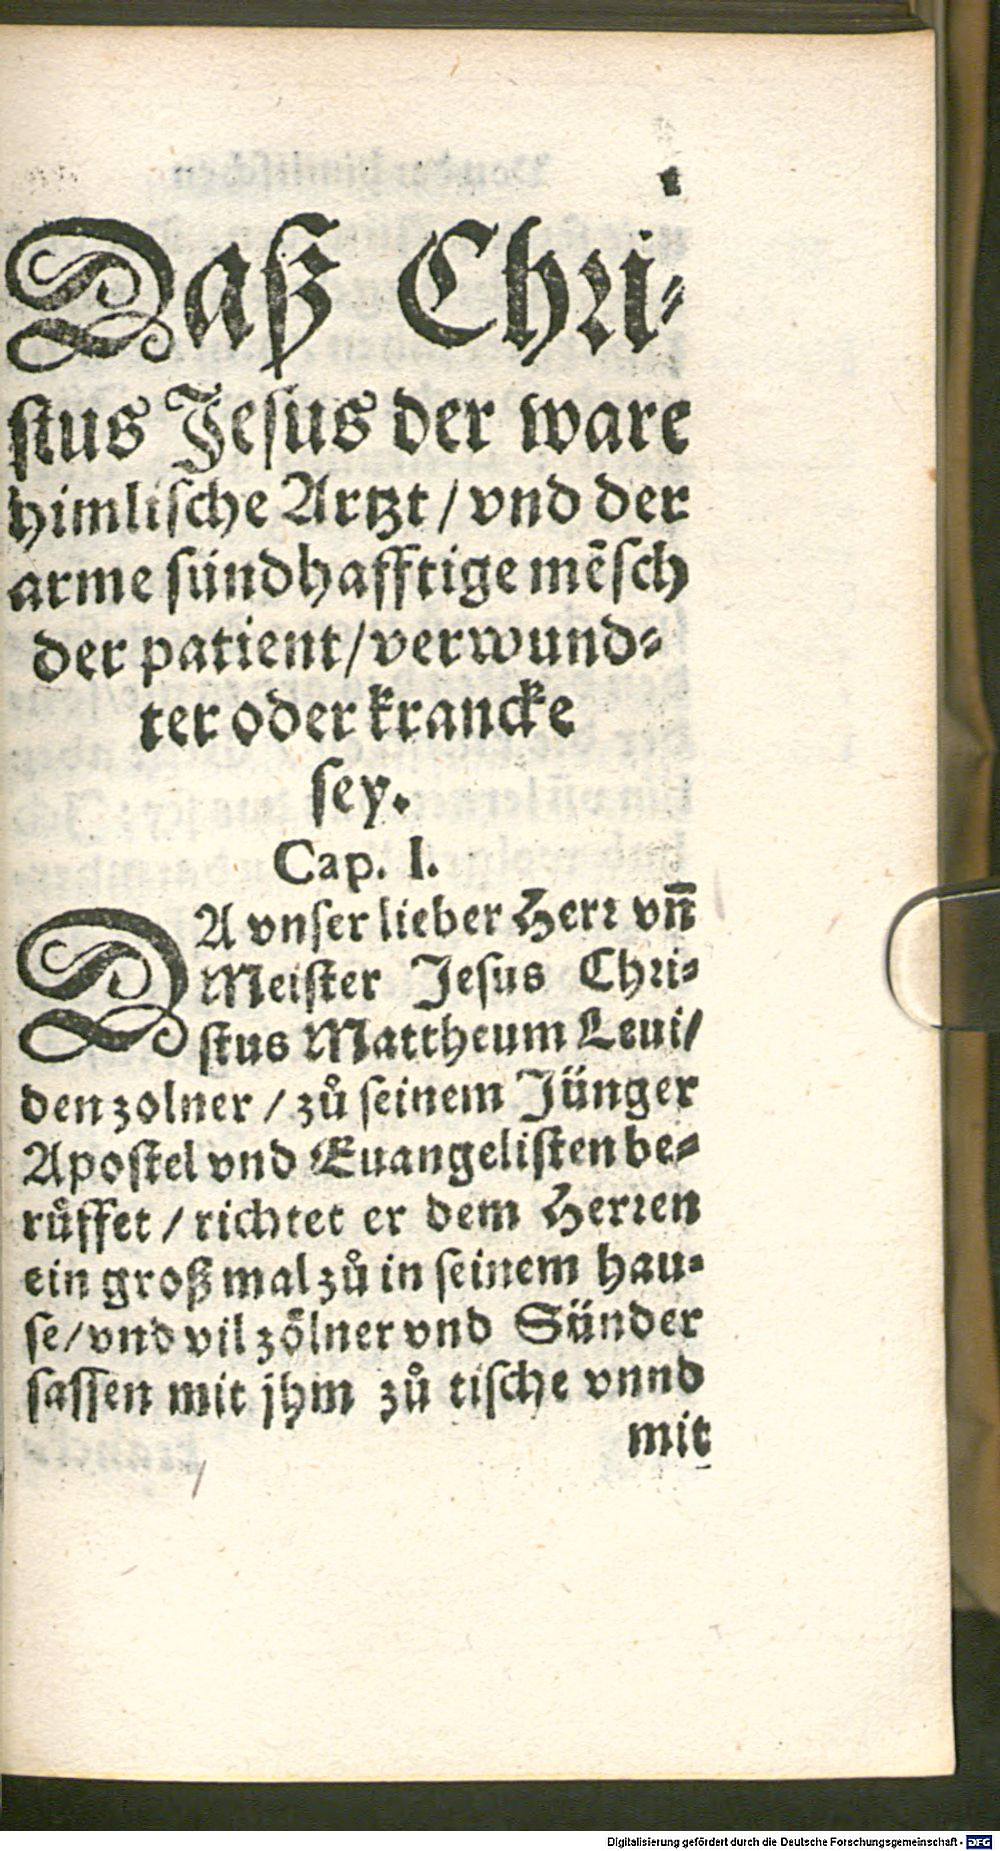 1
Daß Chri⸗
ſtus Jeſus der ware
himliſche Artzt / vnd der
arme ſündhafftige mẽſch
der patient / verwund⸗
ter oder krancke
ſey.
Cap. I.
DA vnſer lieber Herꝛ vñ
Meiſter Jeſus Chꝛi⸗
ſtus Mattheum Leui /
den zolner / zů ſeinem Jünger
Apoſtel vnd Euangeliſten be⸗
růffet / richtet er dem Herꝛen
ein groß mal zů in ſeinem hau⸗
ſe / vnd vil zoͤlner vnd Sünder
ſaſſen mit jhm zů tiſche vnnd
mit
Digitalisierung gefördert durch die Deutsche Forschungsgemeinschaft - DFG